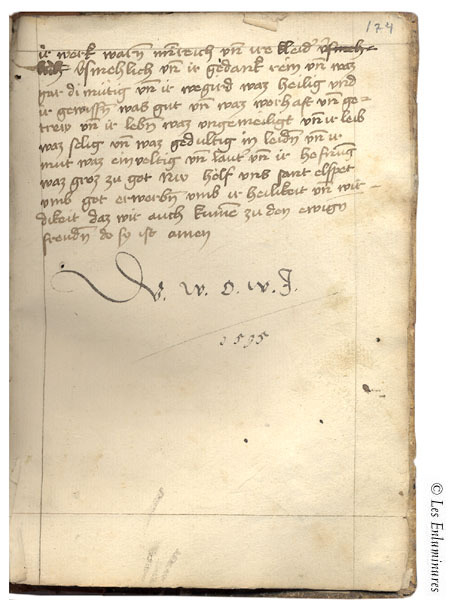 174
ir werk warn mīreich vn̄ ire kleid' v'smeh-
lich v'smehlich vn̄ ir gedank rein vn̄ waz
gar dimütig vn̄ ir wegird waz heilig und
ir gewissn̄ was gut vn̄ waz worhaft vn̄ ge-
trew vn̄ ir lebn̄ waz vngemeiligt vn̄ ir leib
waz selig vn̄ waz gedultig in leidn̄ vn̄ ir
mut waz einveltig vn̄ laut' vn̄ ir hofnūg
waz groz zu got Nw helf vns sant elspet
vmb got erwerbn̄ vmb ir heilikeit vn̄ wir-
dikeit daz wir auch kumē zu den ewign
freudn̄ do so ist amen
W. W. O. W. J.
1595
© Les Enluminures